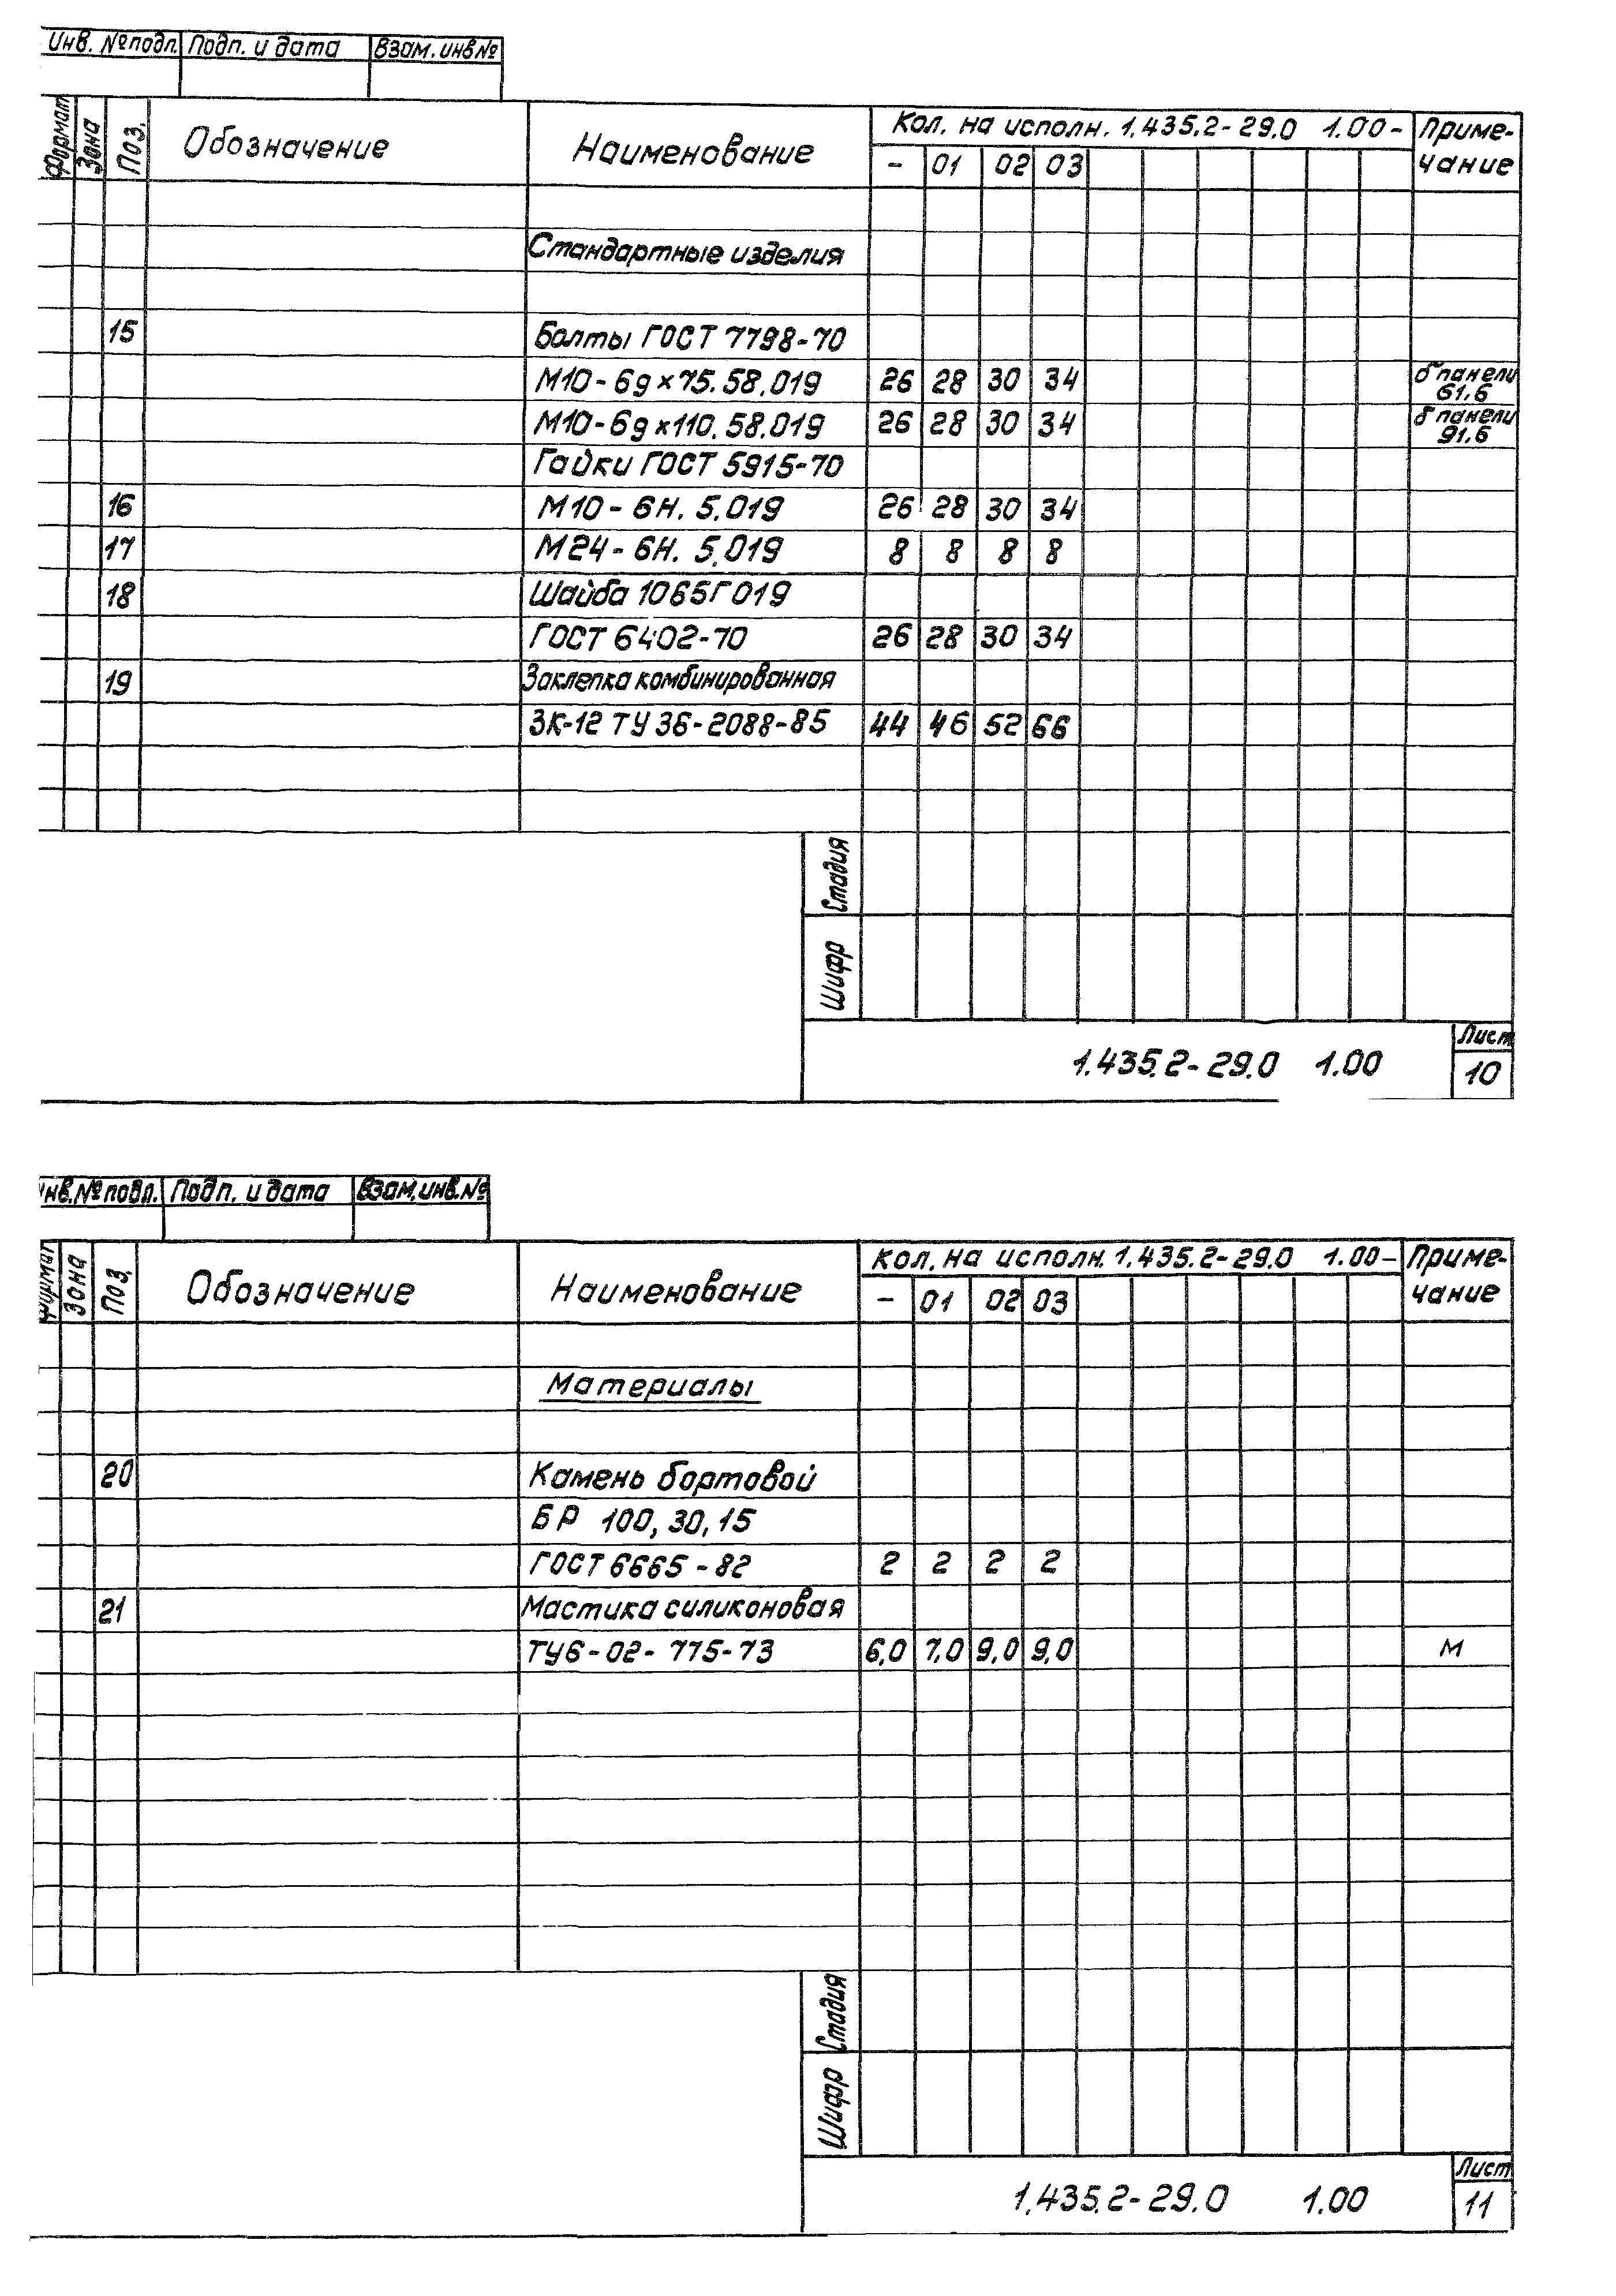 Инв. № подл. Подп. и дата Взам. инв №
Формат Зона Поз. Обозначение Наименование Кол. на исполн. 1.435.2-29.0 1.00- Приме-
- 01 02 03 чание
Стандартные изделия
15 Болты ГОСТ 7798-70
М10-6g×75.58.019 26 28 30 34 δ панели
61,6
М10-6g×110.58.019 26 28 30 34 δ панели
91,6
Гайки ГОСТ 5915-70
16 М10-6Н.5.019 26 28 30 34
17 М24-6Н.5.019 8 8 8 8
18 Шайба 1065Г019
ГОСТ 6402-70 26 28 30 34
19 Заклепка комбинированная
ЗК-12 ТУ 36-2088-85 44 46 52 66
Стадия
Шифр
Лист
1.435.2-29.0 1.00 10
Инв. № подл. Подп. и дата Взам. инв. №
Формат Зона Поз. Обозначение Наименование Кол. на исполн. 1.435.2-29.0 1.00- Приме-
- 01 02 03 чание
Материалы
20 Камень бортовой
БР 100, 30, 15
ГОСТ 6665-82 2 2 2 2
21 Мастика силиконовая
ТУ6-02-775-73 6,0 7,0 9,0 9,0 м
Стадия
Шифр
Лист
1.435.2-29.0 1.00 11